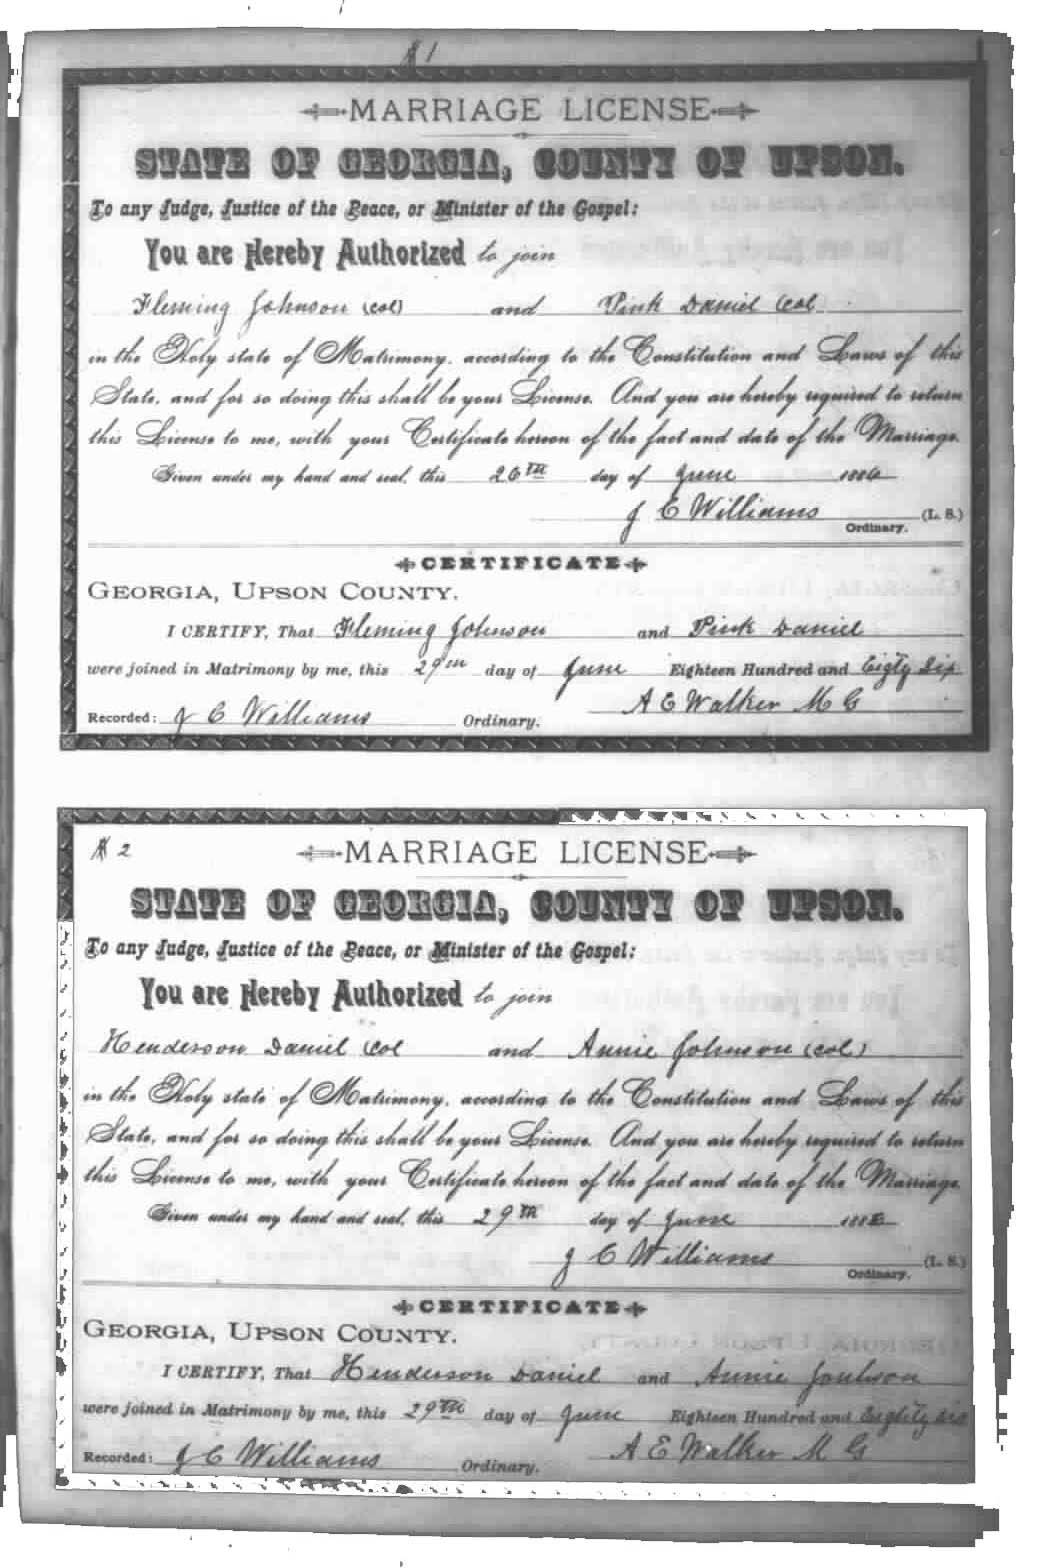 # 1
MARRIAGE LICENSE
STATE OF GEORGIA, COUNTY OF UPSON.
To any Judge, Justice of the Peace, or Minister of the Gospel:
You are Hereby Authorized to join
Fleming Johnson (col) and Pink Daniel (col
in the Holy state of Matrimony, according to the Constitution and Laws of this
State, and for so doing this shall be your License. And you are hereby required to return
this License to me, with your Certificate hereon of the fact and date of the Marriage.
Given under my hand and seal, this 26th day of June 1886
J C Williams (L. S.)
Ordinary.
CERTIFICATE
GEORGIA, UPSON COUNTY.
I CERTIFY, That Fleming Johnson and Pink Daniel
were joined in Matrimony by me, this 29th day of June Eighteen Hundred and Eigty Six
A E Walker M G
Recorded: J C Williams Ordinary.
# 2
MARRIAGE LICENSE
STATE OF GEORGIA, COUNTY OF UPSON.
To any Judge, Justice of the Peace, or Minister of the Gospel:
You are Hereby Authorized to join
Henderson Daniel (col and Annie Johnson (col)
in the Holy state of Matrimony, according to the Constitution and Laws of this
State, and for so doing this shall be your License. And you are hereby required to return
this License to me, with your Certificate hereon of the fact and date of the Marriage.
Given under my hand and seal, this 29th day of June
J C Williams (L. S.)
Ordinary.
CERTIFICATE
GEORGIA, UPSON COUNTY.
I CERTIFY, That Henderson Daniel and Annie Jonhson
were joined in Matrimony by me, this 29th day of June Eighteen Hundred and Eightty six
A E Walker M G
Recorded: J C Williams Ordinary.